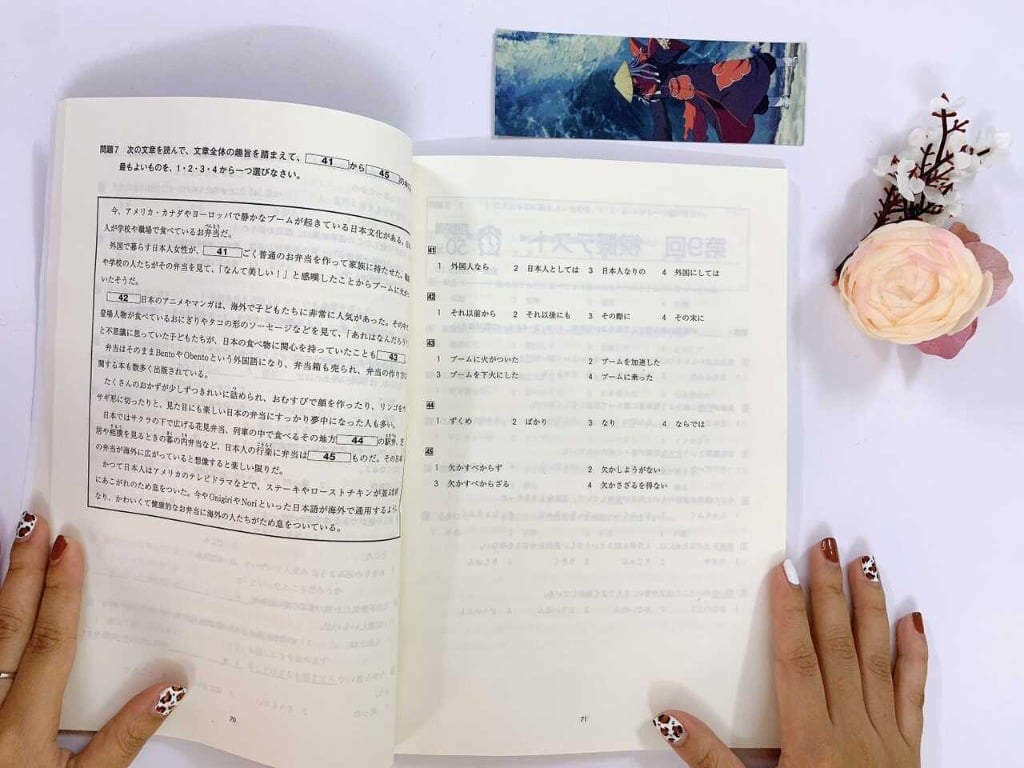 問題7 次の文章を読んで、文章全体の趣旨を踏まえて、 41 から 45 の中に
最もよいものを、1・2・3・4から一つ選びなさい。
今、アメリカ・カナダやヨーロッパで静かなブームが起きている日本文化がある。
人が学校や職場で食べているお弁当だ。
外国で暮らす日本人女性が、 41 ごく普通のお弁当を作って家族に持たせた。
や学校の人たちがその弁当を見て、「なんて美しい!」と感嘆したことからブームに火が
いたそうだ。
42 日本のアニメやマンガは、海外で子どもたちに非常に人気があった。その中で
登場人物が食べているおにぎりやタコの形のソーセージなどを見て、「あれはなんだろう
と不思議に思っていた子どもたちが、日本の食べ物に関心を持っていたことも 43
弁当はそのままBentoやObentoという外国語になり、弁当箱も売られ、弁当の作り方に
関する本も数多く出版されている。
たくさんのおかずが少しずつきれいに詰められ、おむすびで顔を作ったり、リンゴを
サギ形に切ったりと、見た目にも楽しい日本の弁当にすっかり夢中になった人も多い。
日本ではサクラの下で広げる花見弁当、列車の中で食べるその地方 44 の駅弁、
居や相撲を見るときの幕の内弁当など、日本人の行楽に弁当は 45 ものだ。その
の弁当が海外に広がっていると想像すると楽しい限りだ。
かつて日本人はアメリカのテレビドラマなどで、ステーキやローストチキンが並ぶ
にあこがれのため息をついた。今やOnigiriやNoriといった日本語が海外で通用するように
なり、かわいくて健康的なお弁当に海外の人たちがため息をついている。
70
41
1 外国人なら 2 日本人としては 3 日本人なりの 4 外国にしては
42
1 それ以前から 2 それ以後にも 3 その際に 4 その末に
43
1 ブームに火がついた 2 ブームを加速した
3 ブームを下火にした 4 ブームに乗った
44
1 ずくめ 2 ばかり 3 なり 4 ならでは
45
1 欠かすべからず 2 欠かしようがない
3 欠かすべからざる 4 欠かさざるを得ない
71